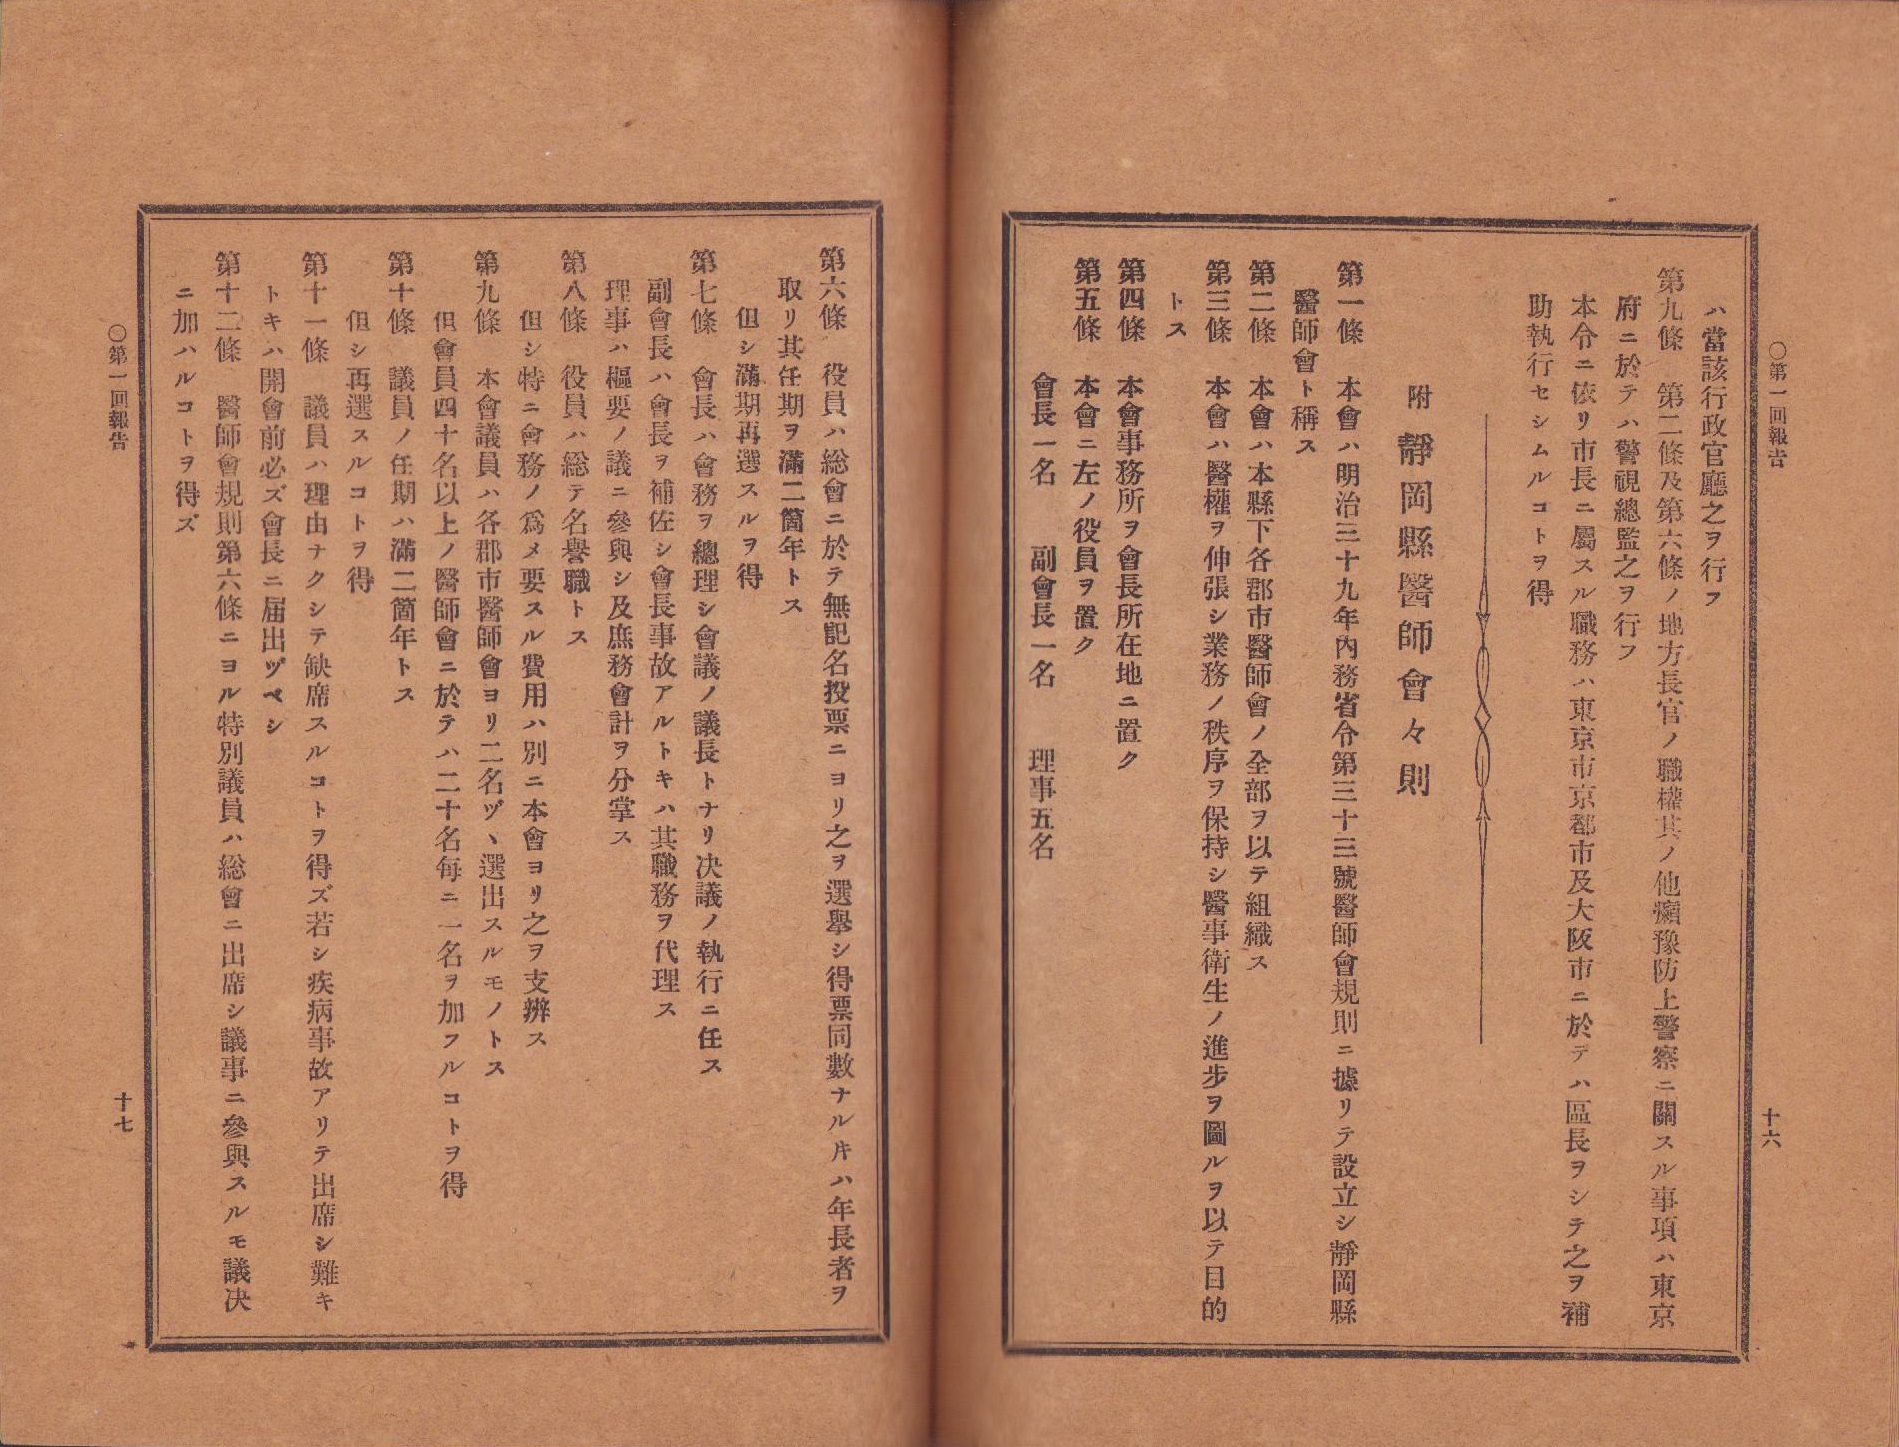 〇第一回報告
十六
ハ當該行政官廳之ヲ行フ
第九條　第二條及第六條ノ地方長官ノ職權其ノ他癩豫防上警察ニ關スル事項ハ東京
府ニ於テハ警視總監之ヲ行フ
本令ニ依リ市長ニ屬スル職務ハ東京市京都市及大阪市ニ於テハ區長ヲシテ之ヲ補
助執行セシムルコトヲ得
附　靜岡縣醫師會々則
第一條　本會ハ明治三十九年內務省令第三十三號醫師會規則ニ據リテ設立シ靜岡縣
醫師會ト稱ス
第二條　本會ハ本縣下各郡市醫師會ノ全部ヲ以テ組織ス
第三條　本會ハ醫權ヲ伸張シ業務ノ秩序ヲ保持シ醫事衛生ノ進步ヲ圖ルヲ以テ目的
トス
第四條　本會事務所ヲ會長所在地ニ置ク
第五條　本會ニ左ノ役員ヲ置ク
會長一名　副會長一名　理事五名
第六條　役員ハ総會ニ於テ無記名投票ニヨリ之ヲ選擧シ得票同數ナルキハ年長者ヲ
取リ其任期ヲ滿二箇年トス
但シ滿期再選スルヲ得
第七條　會長ハ會務ヲ總理シ會議ノ議長トナリ决議ノ執行ニ任ス
副會長ハ會長ヲ補佐シ會長事故アルトキハ其職務ヲ代理ス
理事ハ樞要ノ議ニ參與シ及庶務會計ヲ分掌ス
第八條　役員ハ総テ名譽職トス
但シ特ニ會務ノ爲メ要スル費用ハ別ニ本會ヨリ之ヲ支辨ス
第九條　本會議員ハ各郡市醫師會ヨリ二名ヅヽ選出スルモノトス
但會員四十名以上ノ醫師會ニ於テハ二十名每ニ一名ヲ加フルコトヲ得
第十條　議員ノ任期ハ滿二箇年トス
但シ再選スルコトヲ得
第十一條　議員ハ理由ナクシテ缺席スルコトヲ得ズ若シ疾病事故アリテ出席シ難キ
トキハ開會前必ズ會長ニ届出ヅベシ
第十二條　醫師會規則第六條ニヨル特別議員ハ総會ニ出席シ議事ニ參與スルモ議决
ニ加ハルコトヲ得ズ
〇第一回報告
十七